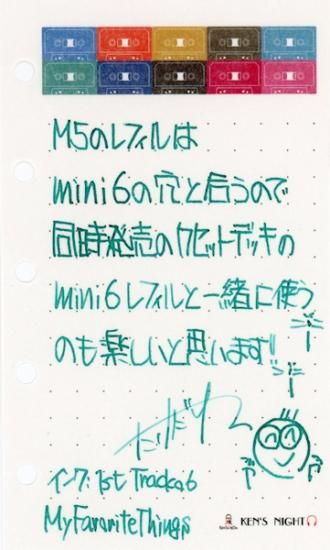 M5のレフィルは
mini6の穴と合うので
同時発売のカセットデッキの
mini6レフィルと一緒に使う
のも楽しいと思います!!
インク:1st Track06
My Favorite Things
KEN'S NIGHT